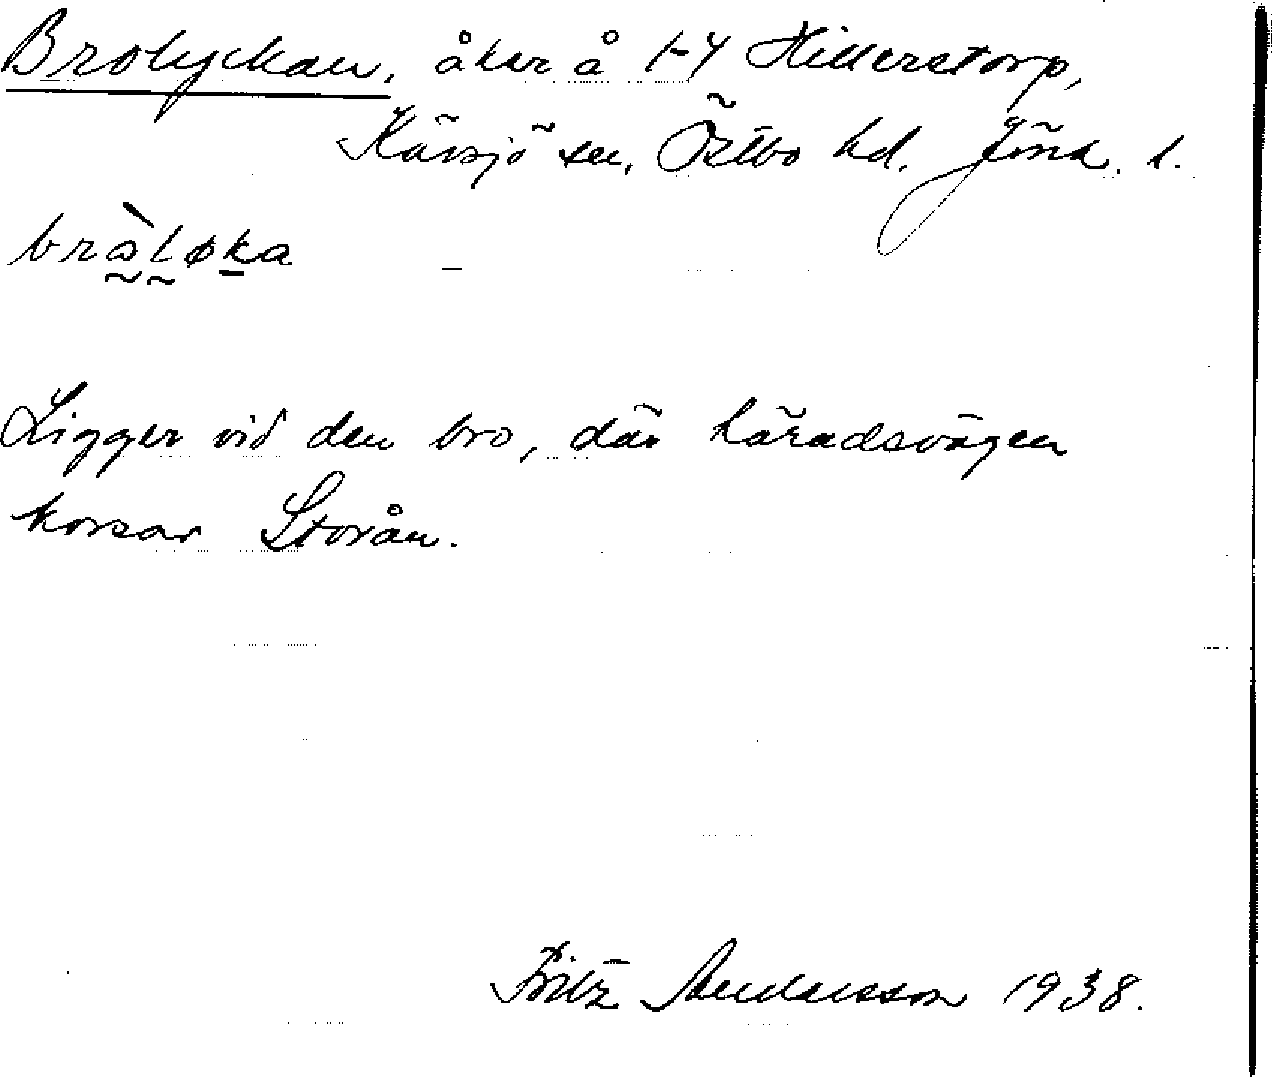 Brolyckan, åker å 1-4 Hillerstorp,
Kävsjö sn, Östbo hd. Jönk. l.
bràløka
Ligger vid den bro, där häradsvägen
korsar Storån.
Fritz Andersson 1938.